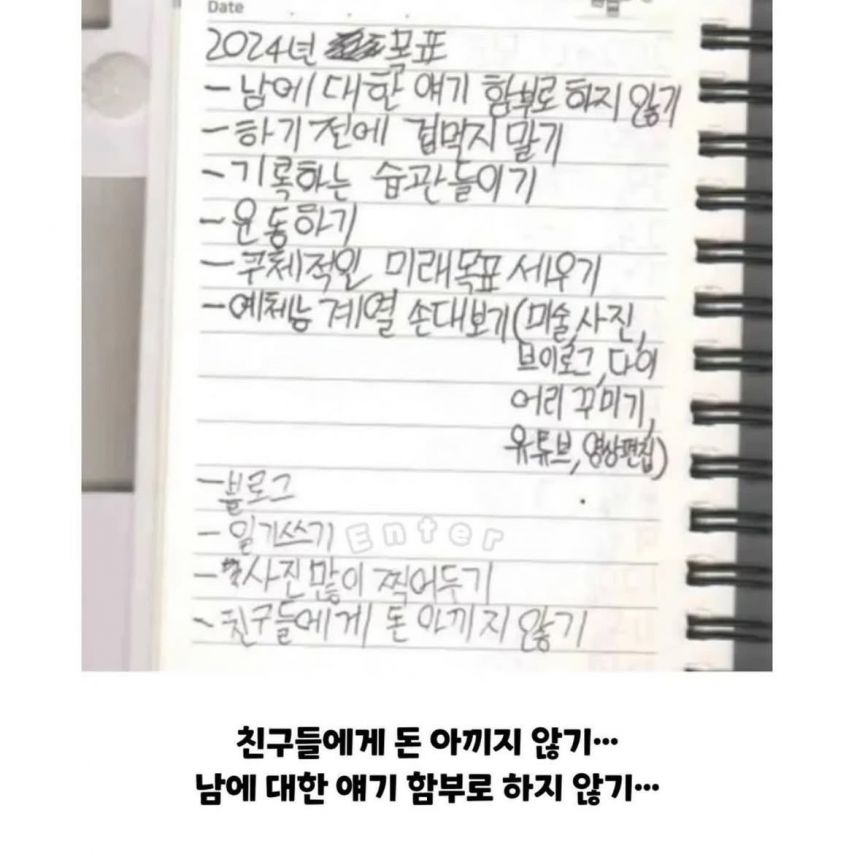 Date
2024년 목표
- 남에 대한 얘기 함부로 하지 않기
- 하기 전에 겁먹지 말기
- 기록하는 습관들이기
- 운동하기
- 구체적인 미래목표 세우기
- 예체능 계열 손대보기(미술,사진,
브이로그,다이
어리 꾸미기,
유튜브,영상편집)
- 블로그
- 일기쓰기
Enter
- 사진 많이 찍어두기
- 친구들에게 돈 아끼지 않기
친구들에게 돈 아끼지 않기...
남에 대한 얘기 함부로 하지 않기...